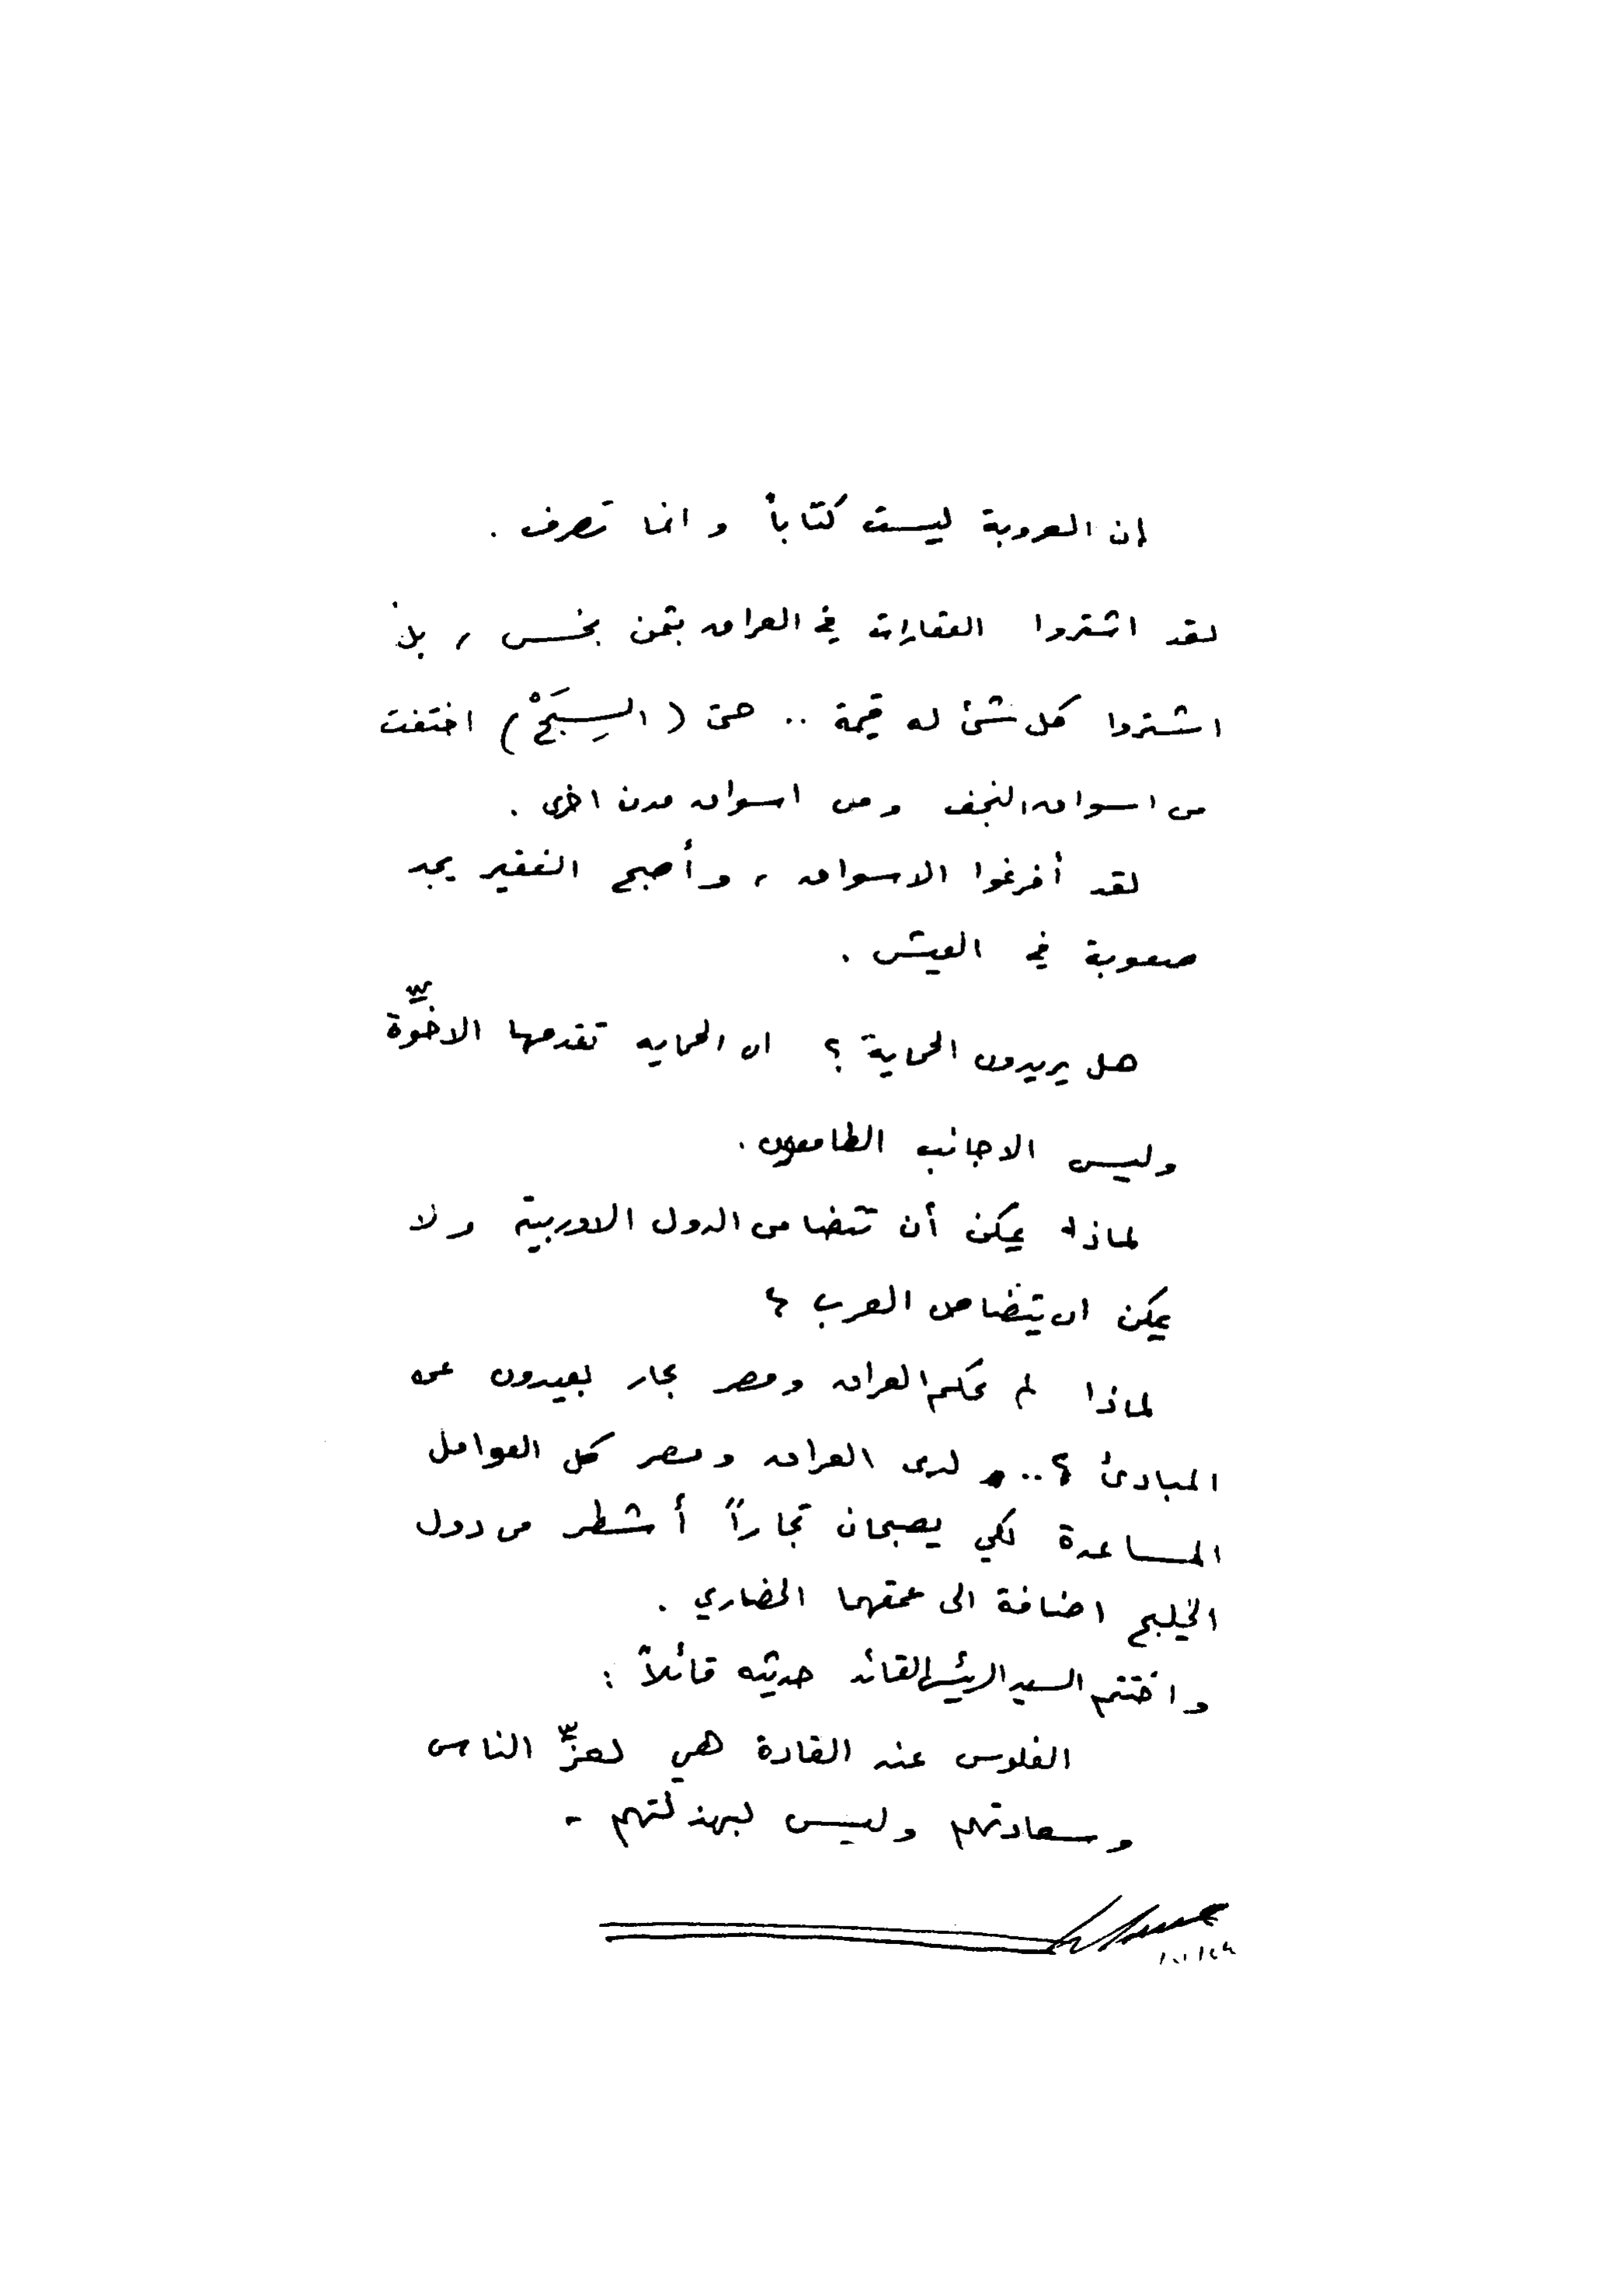 إن العروبة ليست كتاباً وانما تصرف .
لقد اشتروا العقارات في العراق بثمن بخس ، بل
اشتروا كل شئ له قيمة .. حتى ( السِبَحْ ) اختفت
من اسواق النجف ومن اسواق مدن اخرى .
لقد أفرغوا الاسواق ، وأصبح الفقير يجد
صعوبة في العيش .
هل يريدون الحماية ؟ ان الحمايه تقدمها الاخوّة
وليس الاجانب الطامعون .
لماذا يمكن أن تتضامن الدول الاوربية ولا
يمكن ان يتضامن العرب ؟
لماذا لم يحكم العراق ومصر تجار بعيدون عن
المبادئ ؟ .. لدى العراق ومصر كل العوامل
المساعدة لكي يصبحان تجاراً أشطر من دول
الخليج اضافة الى عمقهما الحضاري .
واختتم السيد الرئيس القائد حديثه قائلاً :
الفلوس عند القادة هي لعزّ الناس
وسعادتهم وليس لبهذلتهم -